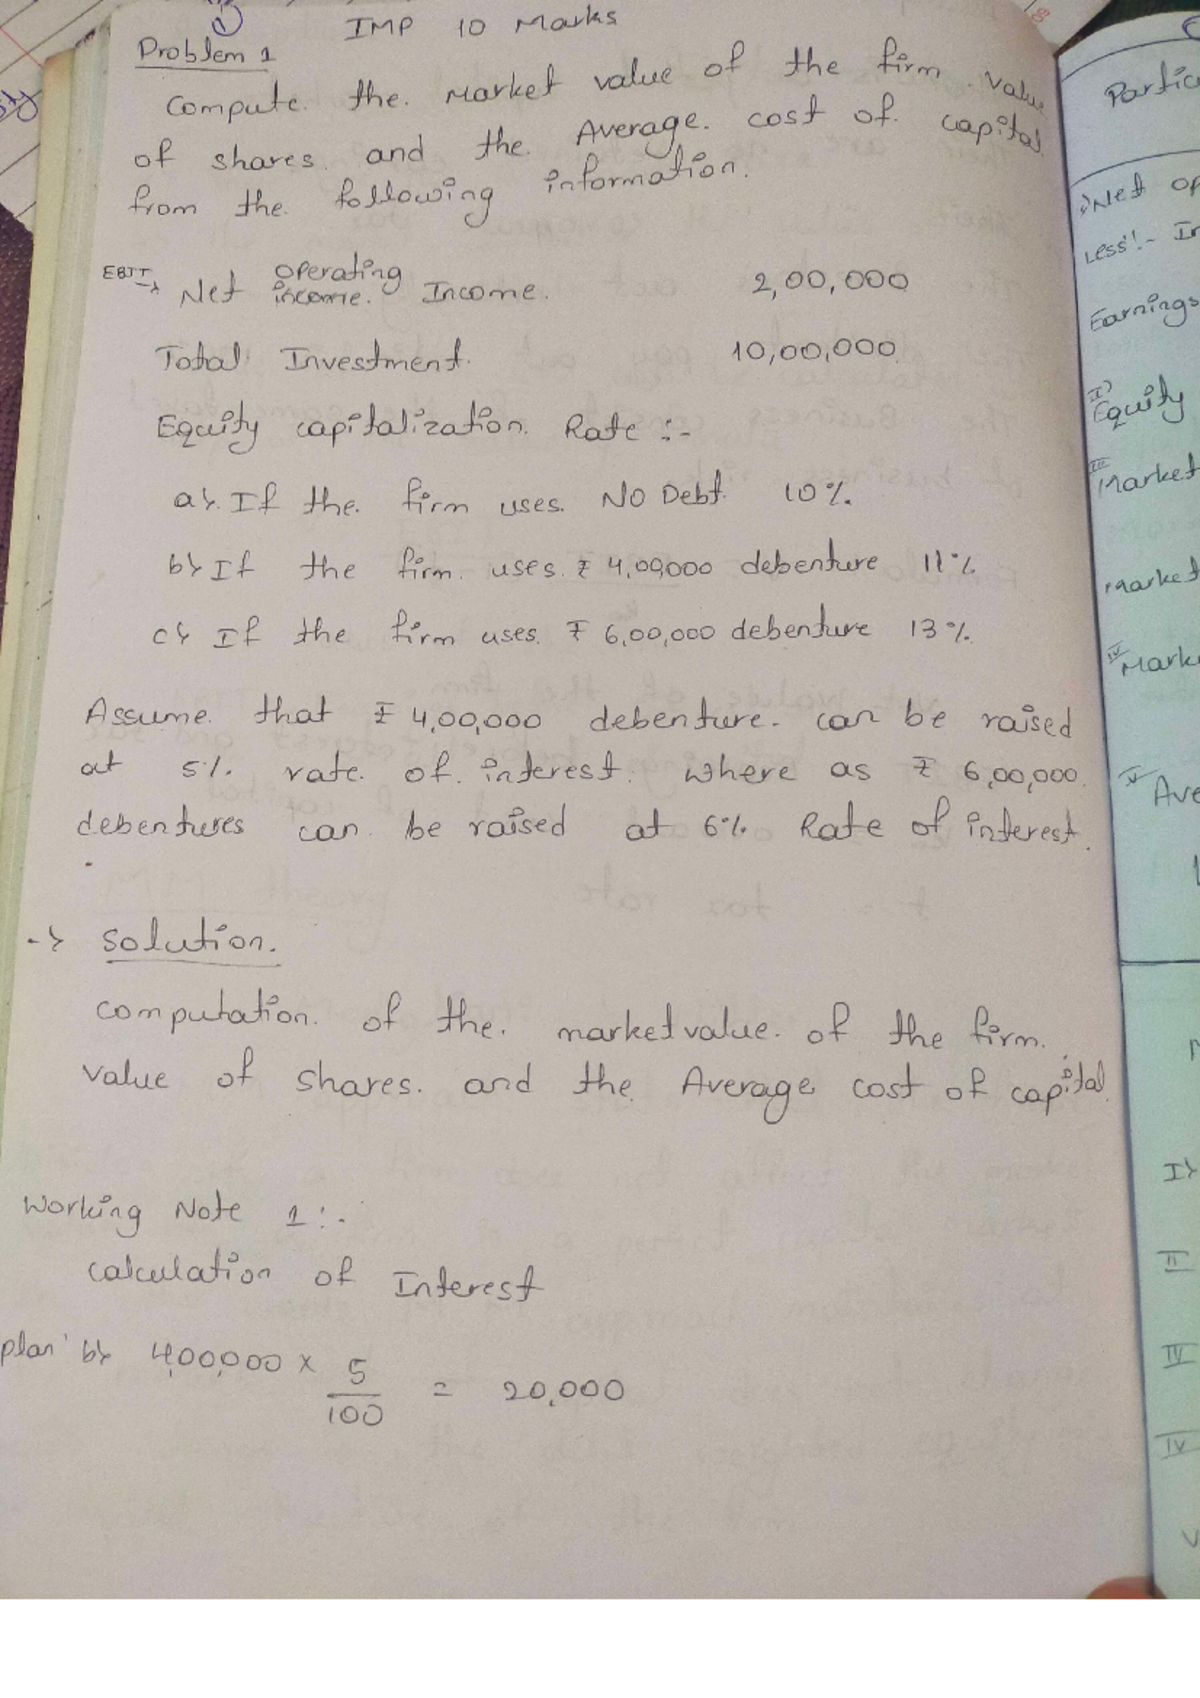 1
IMP 10 Marks
Problem 1
Compute. the. Market value of the firm. Value
of shares. and the. Average. cost of. capital
from the. following information.
EBIT → Net operating income. Income. 2,00,000
Total Investment. 10,00,000
Equity capitalization. Rate :-
a) If the. firm uses. NO Debt. 10%.
b) If the firm. uses. ₹ 4,00,000 debenture 11%
c) If the firm uses. ₹ 6,00,000 debenture 13%
Assume. that ₹ 4,00,000 debenture. can be raised
at 5%. rate. of. interest. where as ₹ 6,00,000.
debentures can. be raised at 6%. Rate of interest.
-> Solution.
computation. of the. market value. of the firm.
value of shares. and the Average cost of capital.
Working Note 1:-
calculation of Interest
plan b) 4,00,000 × 5/100 = 20,000
Net op
Less:- In
Earnings
I)
Equity
III
Market
Market
IV
Mark
V
Ave
I)
II
IV
IV
V